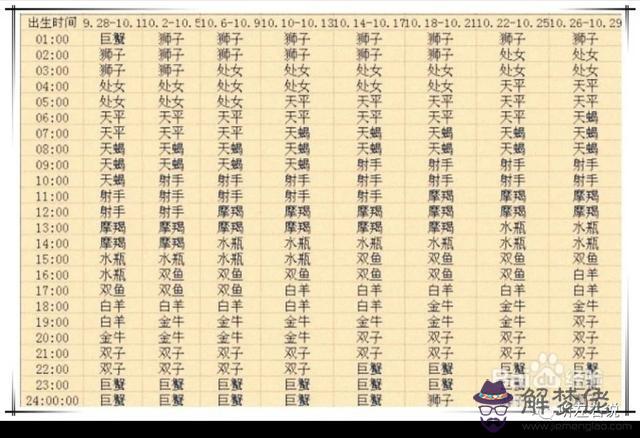 出生时间 9.28-10.1 10.2-10.5 10.6-10.9 10.10-10.13 10.14-10.17 10.18-10.21 10.22-10.25 10.26-10.29
01:00 巨蟹 狮子 狮子 狮子 狮子 狮子 狮子 狮子
02:00 狮子 狮子 狮子 狮子 狮子 狮子 处女 处女
03:00 狮子 狮子 处女 处女 处女 处女 处女 处女
04:00 处女 处女 处女 处女 处女 处女 天平 天平
05:00 处女 处女 处女 天平 天平 天平 天平 天平
06:00 天平 天平 天平 天平 天平 天平 天平 天蝎
07:00 天平 天平 天平 天蝎 天蝎 天蝎 天蝎 天蝎
08:00 天蝎 天蝎 天蝎 天蝎 天蝎 天蝎 天蝎 天蝎
09:00 天蝎 天蝎 天蝎 天蝎 射手 射手 射手 射手
10:00 天蝎 射手 射手 射手 射手 射手 射手 射手
11:00 射手 射手 射手 射手 射手 摩羯 摩羯 摩羯
12:00 射手 射手 摩羯 摩羯 摩羯 摩羯 摩羯 摩羯
13:00 摩羯 摩羯 摩羯 摩羯 摩羯 摩羯 水瓶 水瓶
14:00 摩羯 摩羯 水瓶 水瓶 水瓶 水瓶 水瓶 水瓶
15:00 水瓶 水瓶 水瓶 水瓶 双鱼 双鱼 双鱼 双鱼
16:00 水瓶 双鱼 双鱼 双鱼 双鱼 双鱼 双鱼 白羊
17:00 双鱼 双鱼 双鱼 白羊 白羊 白羊 白羊 白羊
18:00 白羊 白羊 白羊 白羊 白羊 金牛 金牛 金牛
19:00 白羊 金牛 金牛 金牛 金牛 金牛 金牛 双子
20:00 金牛 金牛 金牛 金牛 双子 双子 双子 双子
21:00 双子 双子 双子 双子 双子 双子 双子
22:00 双子 双子 双子 双子 巨蟹 巨蟹 巨蟹 巨蟹
23:00 巨蟹 巨蟹 巨蟹 巨蟹 巨蟹 巨蟹 巨蟹
24:00:00 巨蟹 巨蟹 巨蟹 巨蟹 巨蟹 狮子
解梦佬
www.jiemenglao.com